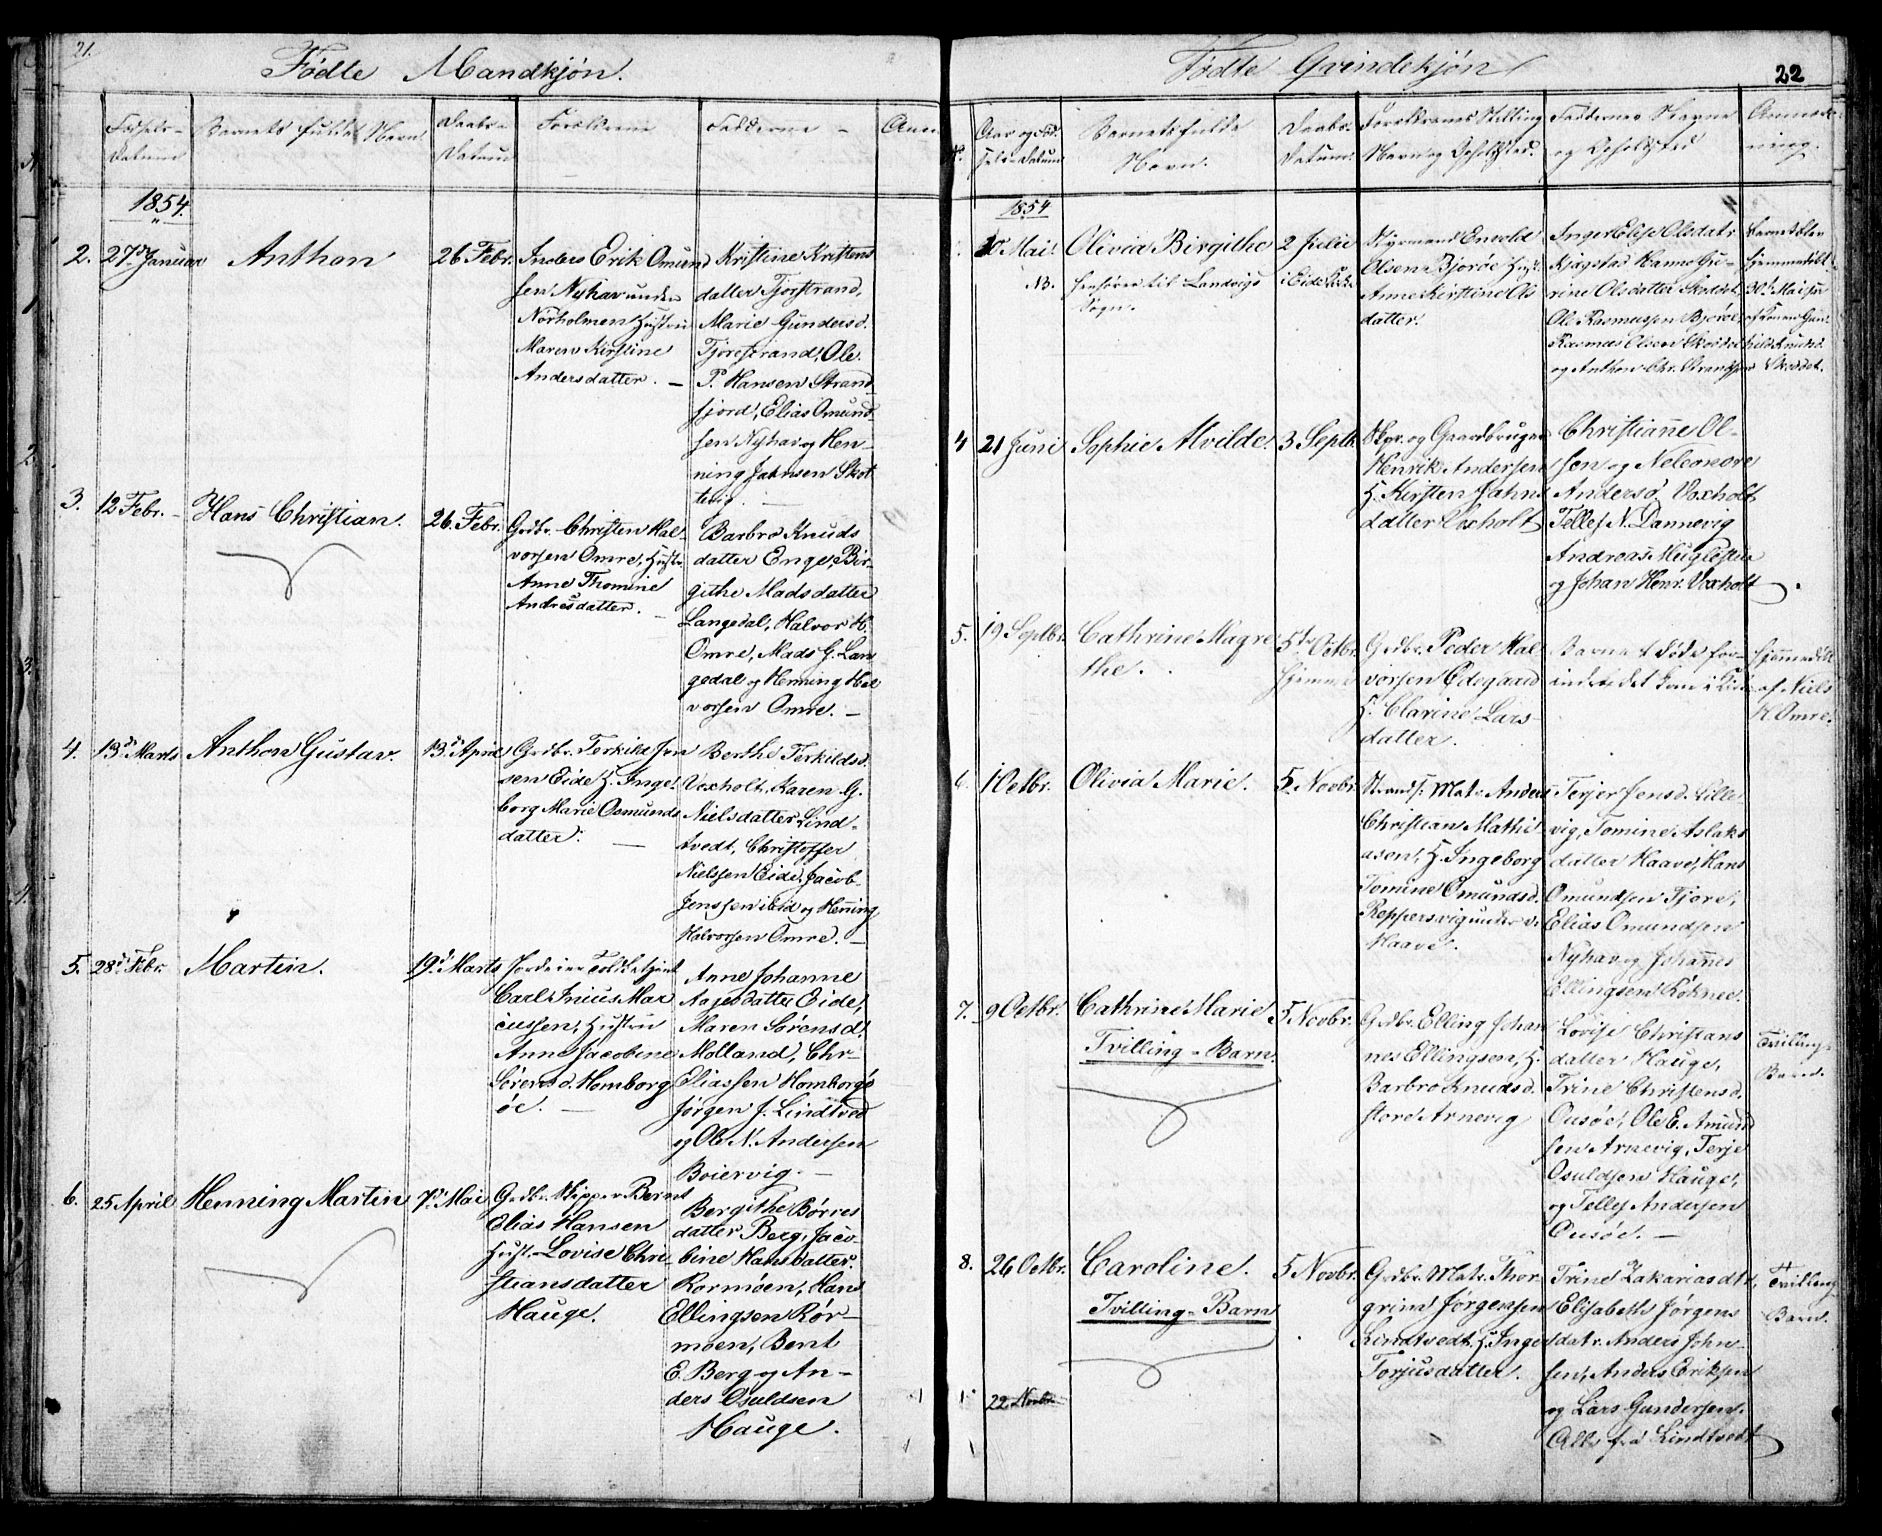 21.
Fødte Mandkjøn.
Fødsels-
Datum
Barnets fulde Navn
Daabs-
Datum
Forældrene
Fadderne -
Anm
1854.
2. 27de Januar
Anthon
26 Febr.
Anders Erik Omund
sen Nyhav under
Nørholmen Hustru
Maren Kirstine
Andersdatter. -
Kristine Kristens
datter Tjorstrand,
Marie Gundersd.
Tjorestrand, Ole
P. Hansen Strand
fjord, Elias Omund
sen Nyhav og Hen-
ning Jahnsen Skot
tevig. -
3. 12 Febr. -
Hans Christian.
26. Febr.
Grdbr. Christen Hal-
vorsen Omre, Hustr.
Anne Thomine
Andreasdatter. -
Barbro Knuds
datter Enge, Bir-
githe Madsdatter
Langedal, Halvor H.
Omre, Mads G. Lan
gedal og Henning Hal
vorsen Omre. -
4. 13de Marts
Anthon Gustav.
13de April
Grdbr. Terkild Jen
sen Eide H. Inge-
borg Marie Osmunds
datter. -
Berthe Terkildsd.
Voxholt, Karen G.
Nielsdatter Lind-
tvedt, Christoffer
Nielssen Eide, Jacob
Jenssen ibid og Henning
Halvorsen Omre. -
5. 28de Febr.
Martin.
19de Marts
Carl Inius Mar
cussen, Hustru
Anne Jacobine
Sørensd. Homborg
øe. -
Anne Johanne
Aagesdatter Eide,
Maren Sørensd.
Molland, Chr.
Eliassen Homborgø
Jørgen J. Lindtved
og Ole N. Andersen
Boiervig. -
6. 25 April
Henning Martin
7de Mai
Grdbr. Skipper Bernt
Elias Hansen
Hust. Lovise Chri
stiansdatter
Hauge.
Bergithe Børres
datter Berg, Jaco-
bine Hansdatter
Rørmoen, Hans
Ellingsen Rør-
moen, Bent
E. Berg og An-
ders Osuldsen
Hauge.
Fødte Qvindekjøn
22
No.
Aar og Fød-
sels-Datum
Barnets fulde
Navn.
Daabs-
Datum.
Forældrenes Stilling
Navn og Opholdsted.
Faddernes Navne
og Opholdsted
Anmærk-
ning.
1854
10de Mai
NB.
Olivia Birgithe
henhører til Landvigs
Sogn.
2 Julie
i Eide Kirk.
Styrmand Envold
Olsen Bjorøe Hust.
Anne Kirstine Ols
datter.
Inger Elise Olsdatr
Kjøgstad Hanne Gu-
rine Olsdatter Skodset,
Ole Rasmussen Bjorøe,
Rasmus Olsen Skodset
og Anthon Chr.
Barnet blev
hjemmedøbt
30te Mai
af Gun-
hild Knudsd.
Skodset.
4
21 Juni
Sophie Alvilde.
3 Septb.
Skpr. og Gaardbruger
Henrik Andersen
H. Kirsten Jahns
datter Voxholt
Christiane Ol-
sen og Neleonore
Andersd. Voxholt
Tellef N. Dannevig
Andreas
og Johan Henr. Voxholt.
5.
19 Septbr.
Cathrine Magre
the.
5te Octbr.
hjemme
Grdbr. Peder Hal
vorsen Ødegaard
H. Clarine Lars-
datter.
Barnet døde for-
inden det kom i Kirke
Hjemmedøbt
af Niels
H. Omre.
6.
1 Octbr.
Olivia Marie.
5 Novbr.
Strands. Matr. Anders
Christian Mathi
asen, H. Ingeborg
Tomine Omundsd.
Reppersvig under
Haave.
Terjer Jensd. Lille-
vig, Tomine Aslaks
datter Haave, Hans
Omundsen Tjore,
Elias Omundsen
Nyhav og Johannes
Ellingsen
7.
9 Octbr.
Cathrine Marie
Tvilling-Barn.
5 Novbr.
Grdbr. Elling Johan
nes Ellingsen, H.
Barbro Knudsd.
store Arnevig
Lovise Christians
datter Hauge,
Trine Christensd.
Ousøe, Ole E. Amund
sen Arnevig, Terje
Osuldsen Hauge,
og Tellef Andersen
Ousøe. -
Tvilling-
Barn.
8.
26 Octbr.
Caroline.
Tvilling-Barn
5 Novbr.
Grdbr. Matr. Thor
grim Jørgensen
Lindtvedt, H. Inger
Torjusdatter.
Trine Zakariasdt,
Elisabeth Jørgens
datr. Anders John-
sen, Anders Eriksen
og Lars Gundersen.
Alle fra Lindtvedt
Tvilling
Barn.
22 Novbr.